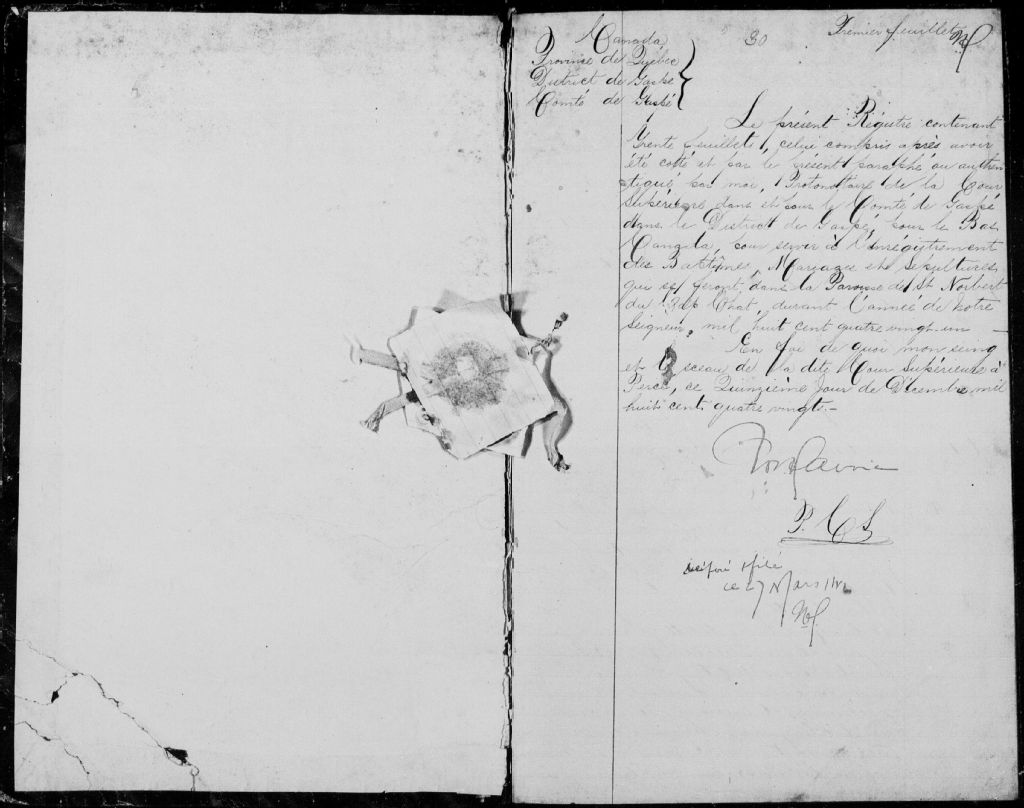 30 Premier feuillet
Canada
Province de Québec
District de Gaspé
Comté de Gaspé
Le présent Régistre contenant
trente feuillets, celui compris après avoir
été coté et par le présent paraphé ou authen
tiqué par moi, Protonotaire de la Cour
Supérieure dans et pour le Comté de Gaspé
dans le District de Gaspé, pour le Bas
Canada, pour servir à l'enrégistrement
des Baptêmes, Mariages et Sépultures
qui se feront dans la Paroisse de St Norbert
du Cap Chat, durant l'année de notre
Seigneur, mil huit cent quatre vingt-un
En foi de quoi mon seing
et le sceau de la dite Cour Supérieure à
Percé, ce Quinzième Jour de Décembre mil
huit cent quatre vingt.-
P. C S
ce 27 Mars